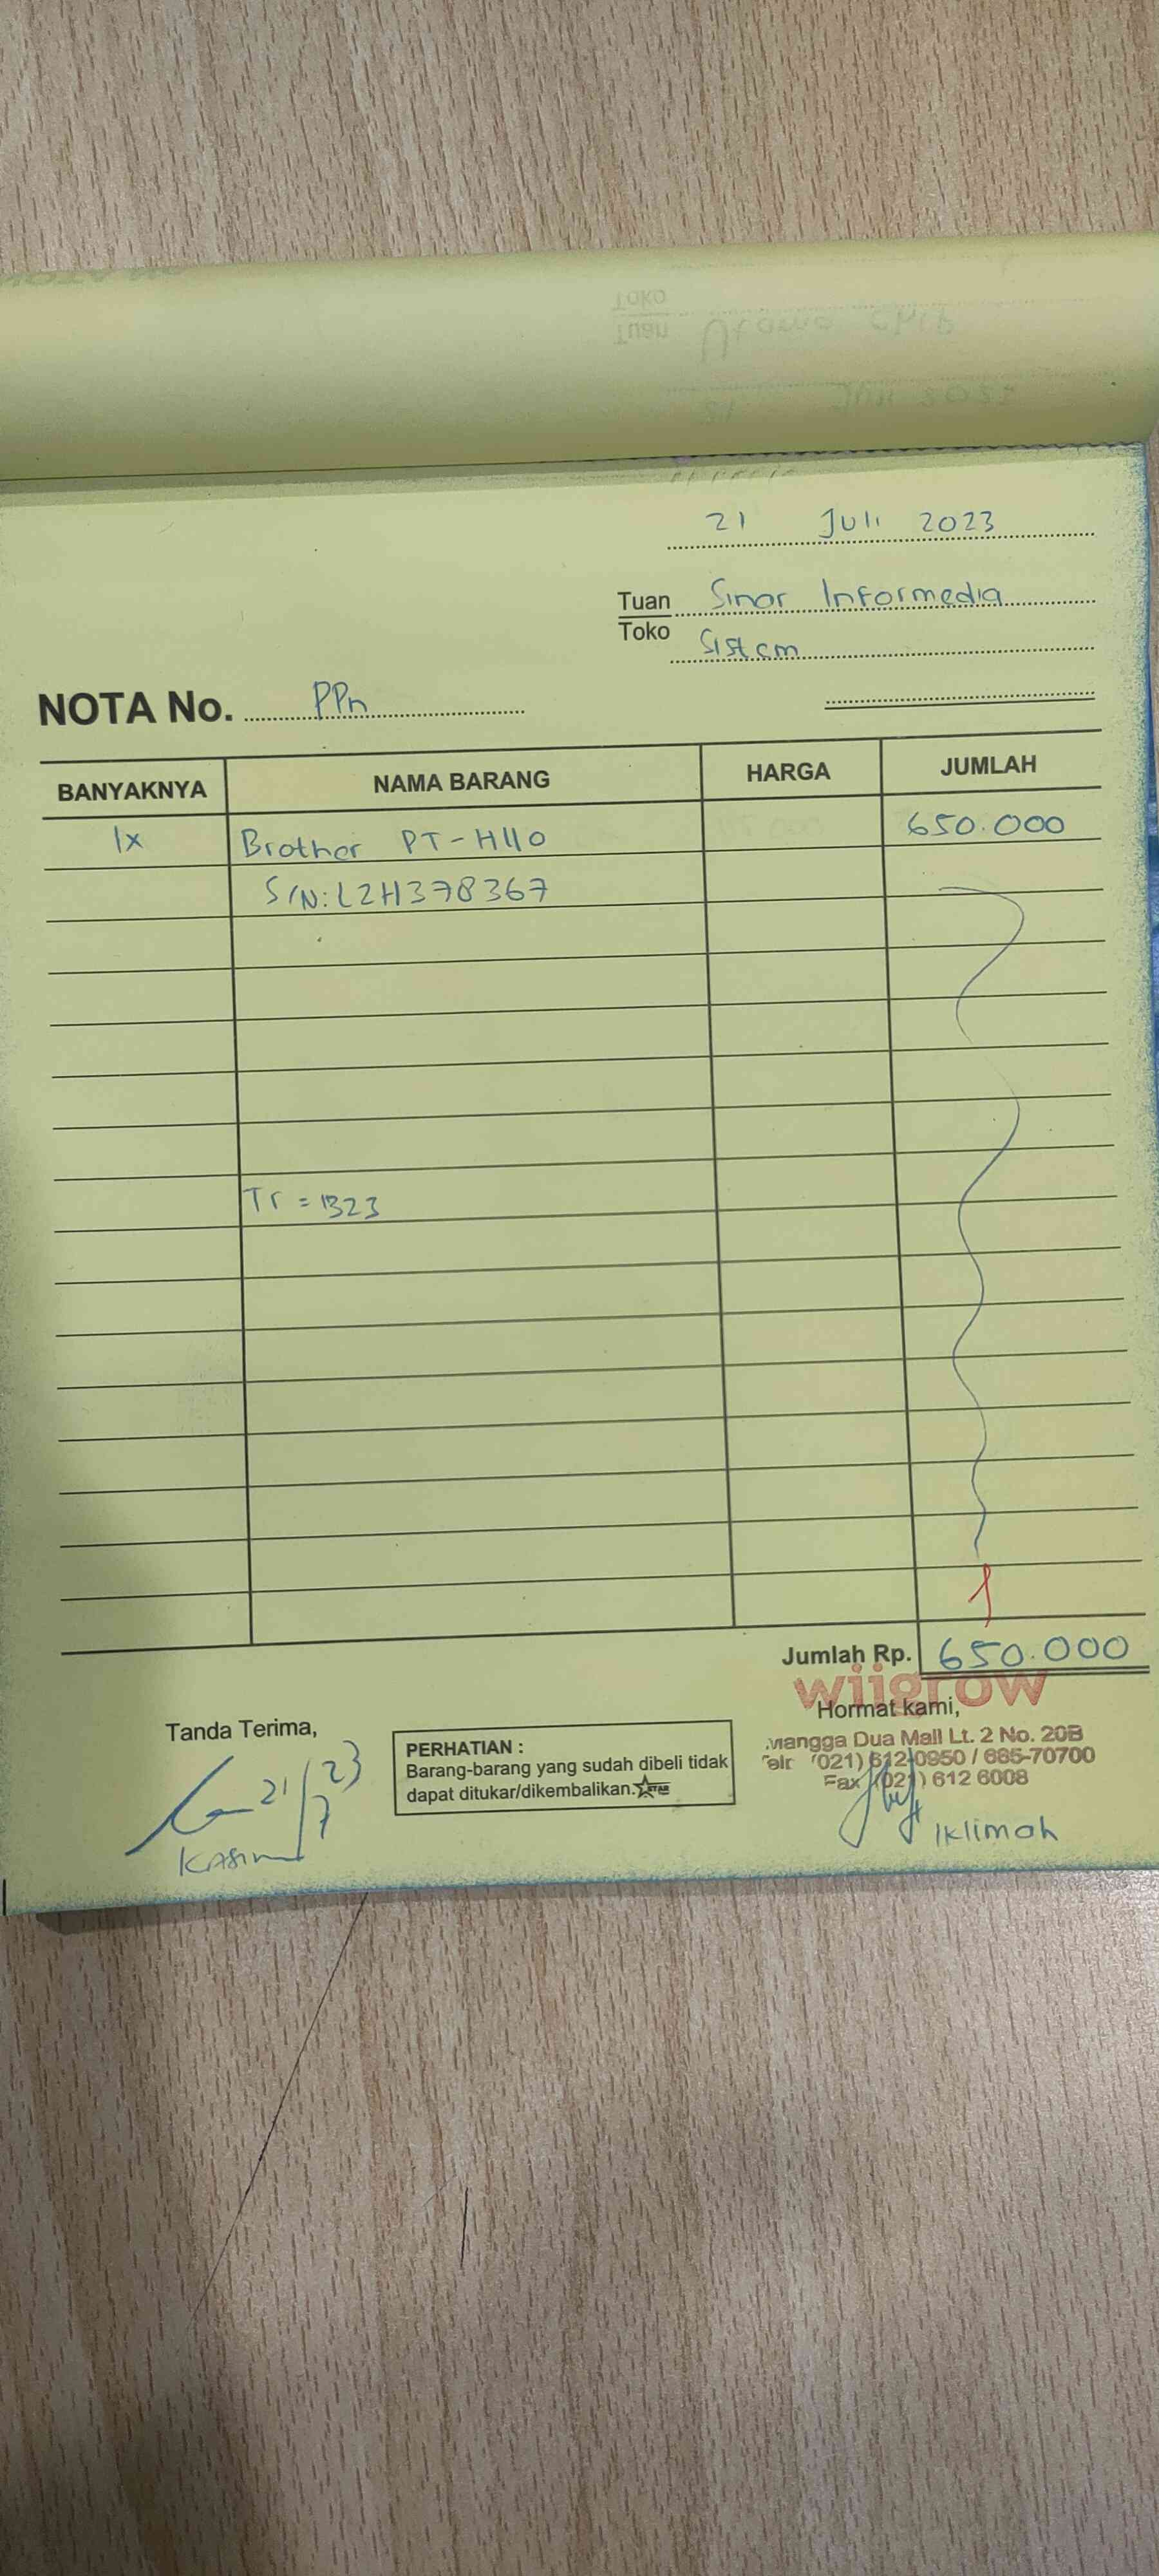 21 Juli 2023
Tuan Sinar Informedia
Toko Sistem
NOTA No. PPn
BANYAKNYA NAMA BARANG HARGA JUMLAH
1x Brother PT-H110 650.000
S/N: L2H378367
Tr = 1323
Jumlah Rp. 650.000
wiigrow
Hormat kami,
Mangga Dua Mall Lt. 2 No. 20B
Telp (021) 612 0950 / 685-70700
Fax (021) 612 6008
Iklimah
Tanda Terima,
21/7 23
Kasim
PERHATIAN :
Barang-barang yang sudah dibeli tidak
dapat ditukar/dikembalikan. STAR